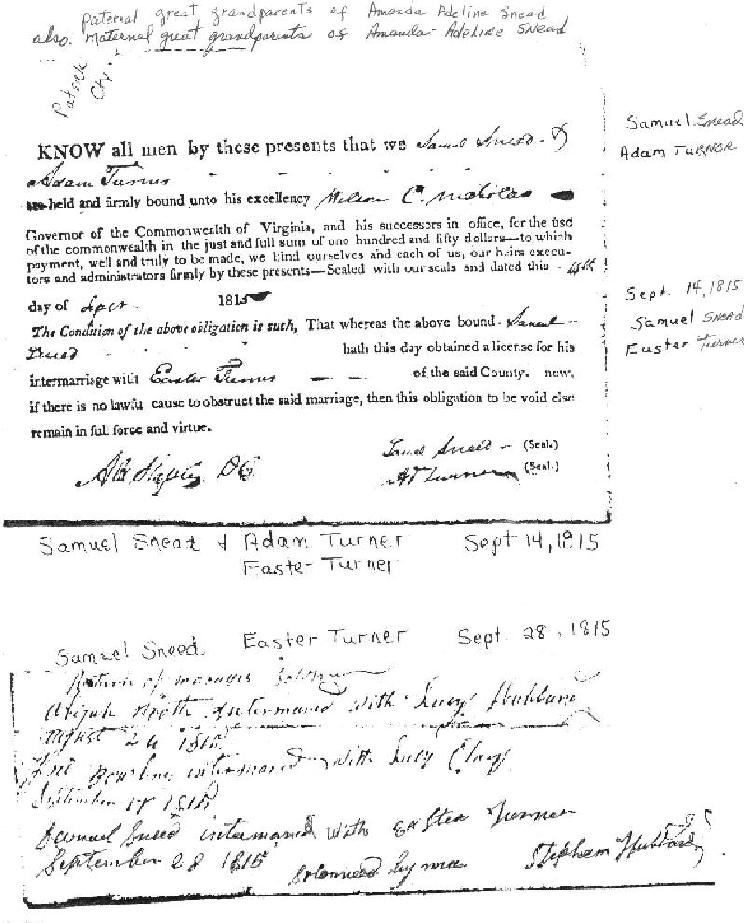 paternal great grandparents of Amanda Adeline Snead
also. maternal great grandparents of Amanda Adeline Snead
Patrick
Cty.
KNOW all men by these presents that we Saml Snead &
Adam Turner
are held and firmly bound unto his excellency Wilson C. Nicholas
Governor of the Commonwealth of Virginia, and his successors in office, for the use
of the commonwealth in the just and full sum of one hundred and fifty dollars—to which
payment, well and truly to be made, we bind ourselves and each of us, our heirs execu-
tors and administrators firmly by these presents—Sealed with our seals and dated this 14th
day of Sept 1815
The Condition of the above obligation is such, That whereas the above bound Samuel
Snead hath this day obtained a license for his
intermarriage with Easter Turner of the said County. now,
if there is no lawful cause to obstruct the said marriage, then this obligation to be void else
remain in full force and virtue.
Saml Snead (Seal.)
Ad Turner (Seal.)
Samuel Snead
Adam TURNER
Sept. 14, 1815
Samuel Snead
Easter Turner
Samuel Snead & Adam Turner Sept 14, 1815
Easter Turner
Samuel Sneed. Easter Turner Sept. 28, 1815
Return of marriages
Abijah intermarried with Lucy Hubbard
August 24 1815
intermarried with Lucy
September 1815
Samuel Sneed intermarried with Easter Turner
September 28 1815 Solemnized by me Stephen Hubbard